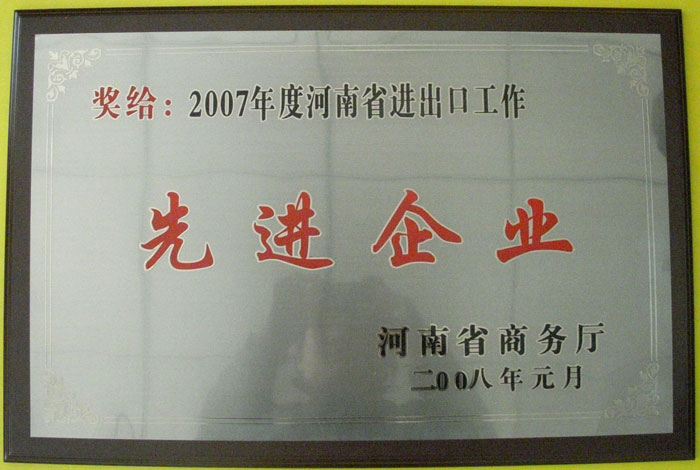 奖给：2007年度河南省进出口工作
先进企业
河南省商务厅
二00八年元月